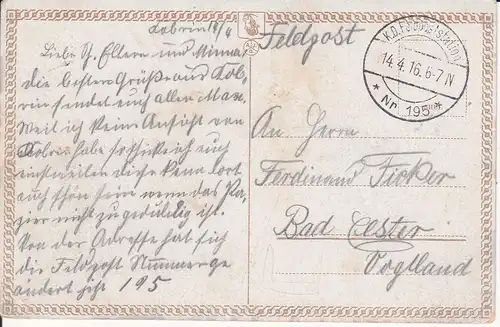 Kobrin 14/4
Liebe Schw. Eltern und Minna
die besten Grüße aus Kob-
rin sendet euch allen Max.
Weil ich keine Ansicht von
Kobrin habe so schicke ich euch
einstweilen diese kann dort
auch schön sein wenn das Pa-
pier nicht zu geduldig ist.
Von der Adresse hat sich
die Feldpost Nummer ge
ändert jetzt 195
Feldpost
K.D. Feldpoststation
14.4.16. 6-7 N
* Nr. 195 *
An Herrn
Ferdinand Ficker
Bad Elster
Vogtland